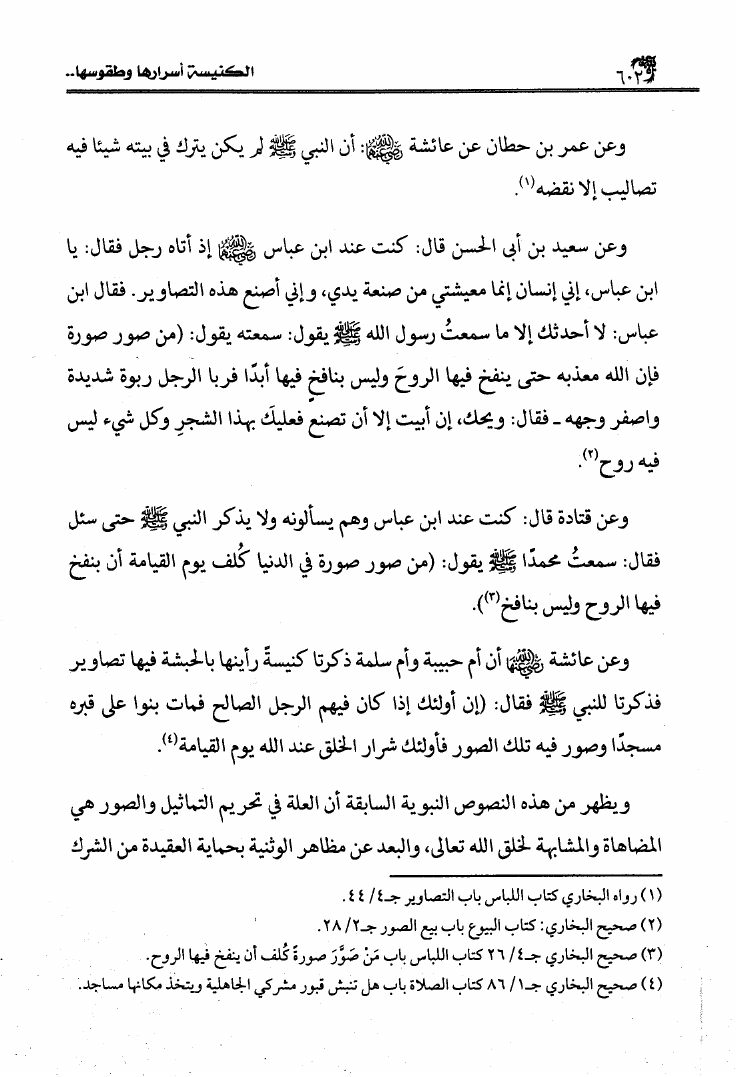 ٦٠٢
الكنيسة أسرارها وطقوسها..
وعن عمر بن حطان عن عائشة رضي الله عنها: أن النبي ﷺ لم يكن يترك في بيته شيئا فيه
تصاليب إلا نقضه(١).
وعن سعيد بن أبى الحسن قال: كنت عند ابن عباس رضي الله عنهما إذ أتاه رجل فقال: يا
ابن عباس، إني إنسان إنما معيشتي من صنعة يدي، وإني أصنع هذه التصاوير. فقال ابن
عباس: لا أحدثك إلا ما سمعتُ رسول الله ﷺ يقول: سمعته يقول: (من صور صورة
فإن الله معذبه حتى ينفخ فيها الروحَ وليس بنافخٍ فيها أبدًا فربا الرجل ربوة شديدة
واصفر وجهه - فقال: ويحك، إن أبيت إلا أن تصنع فعليكَ بهذا الشجرِ وكل شيء ليس
فيه روح(٢).
وعن قتادة قال: كنت عند ابن عباس وهم يسألونه ولا يذكر النبي ﷺ حتى سئل
فقال: سمعتُ محمدًا ﷺ يقول: (من صور صورة في الدنيا كُلف يوم القيامة أن ينفخ
فيها الروح وليس بنافخ(٣)).
وعن عائشة رضي الله عنها أن أم حبيبة وأم سلمة ذكرتا كنيسةً رأينها بالحبشة فيها تصاوير
فذكرتا للنبي ﷺ فقال: (إن أولئك إذا كان فيهم الرجل الصالح فمات بنوا على قبره
مسجدًا وصور فيه تلك الصور فأولئك شرار الخلق عند الله يوم القيامة(٤).
ويظهر من هذه النصوص النبوية السابقة أن العلة في تحريم التماثيل والصور هي
المضاهاة والمشابهة لخلق الله تعالى، والبعد عن مظاهر الوثنية بحماية العقيدة من الشرك
(١) رواه البخاري كتاب اللباس باب التصاوير جـ٤/ ٤٤.
(٢) صحيح البخاري: كتاب البيوع باب بيع الصور جـ٢/ ٢٨.
(٣) صحيح البخاري جـ٤/ ٢٦ كتاب اللباس باب مَنْ صَوَّرَ صورةً كُلف أن ينفخ فيها الروح.
(٤) صحيح البخاري جـ١/ ٨٦ كتاب الصلاة باب هل تنبش قبور مشركي الجاهلية ويتخذ مكانها مساجد.